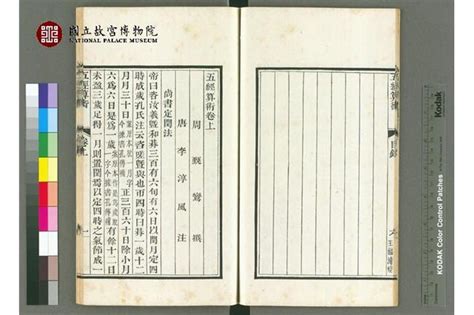 國立故宮博物院
NATIONAL PALACE MUSEUM
五經算術
目錄
五經算術卷上
周 甄鸞 撰
唐 李淳風 注
尚書定閏法
帝曰咨汝羲暨和朞三百有六旬有六日以閏月定四
時成歲孔氏注云咨嗟暨與也帀四時曰朞一歲十二
月月三十日正三百六十日除小月
六為六日是為一歲有餘十二日
未盈三歲足得一月則置閏焉以定四時之氣節成一
五經算術
卷上
一
Kodak
KODAK Color Control Patches